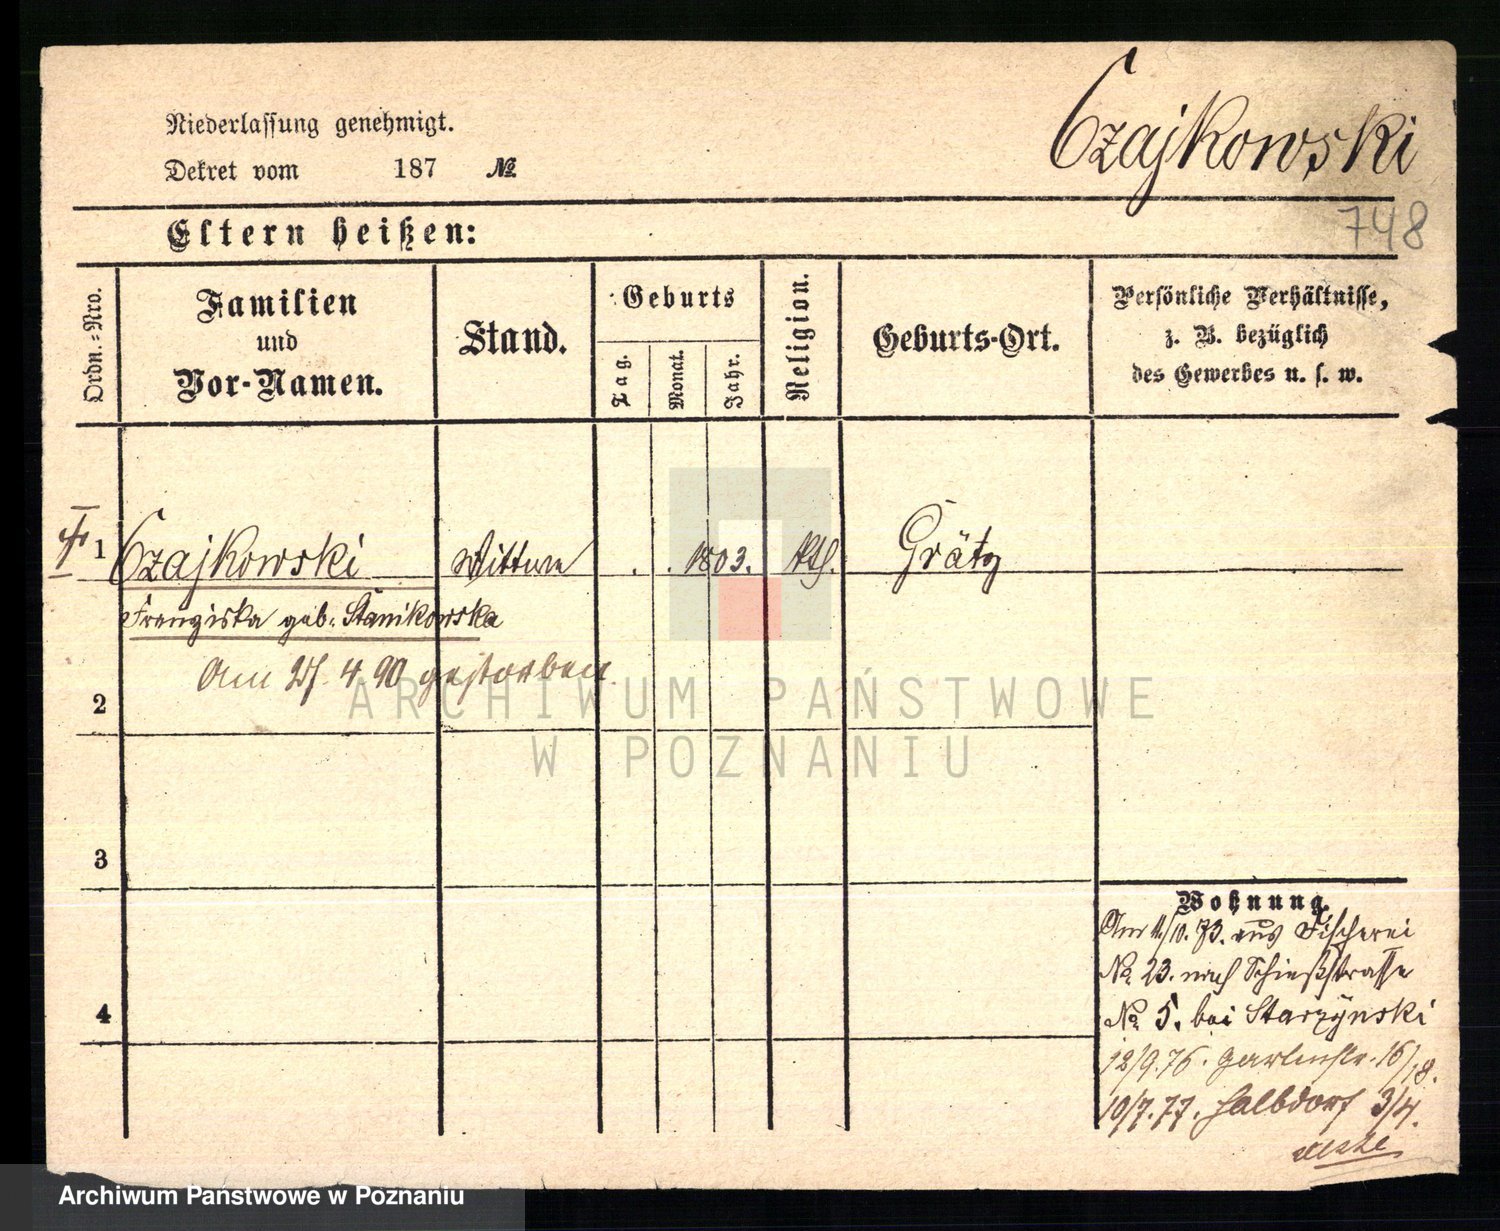 Niederlassung genehmigt.
Dekret vom 187 №
Czajkowski
748
Eltern heißen:
Ordn.-Nro.
Familien
und
Vor-Namen.
Stand.
Geburts
Tag.
Monat.
Jahr.
Religion.
Geburts-Ort.
Persönliche Verhältnisse,
z. B. bezüglich
des Gewerbes u. s. w.
1 Czajkowski Wittwe . . 1803. kth. Grätz
Franziska geb. Stanikowska
Am 4. 90 gestorben
2
3
4
Wohnung.
Am 11/10. 73. aus Fischerei
№ 23. nach Schießstrasse
№ 5. bei Starzynski
12/9.76. Gartenstr. 16/18.
10/7.77. Halbdorf 3/4.
ARCHIWUM PAŃSTWOWE
W POZNANIU
Archiwum Państwowe w Poznaniu